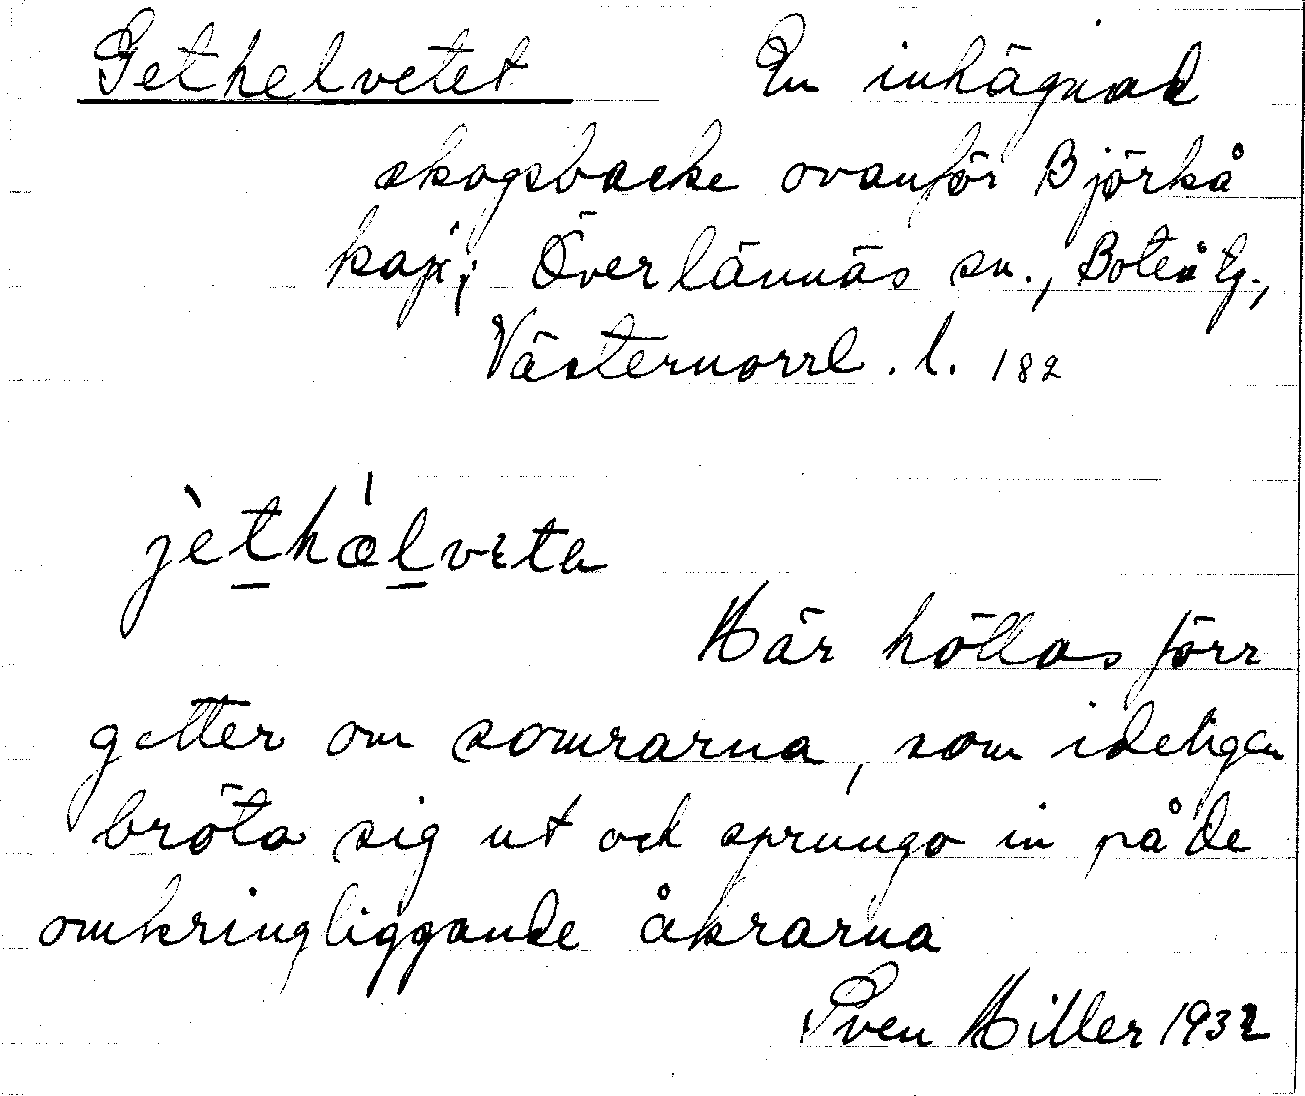 Gethelvetet En inhägnad
skogsbacke ovanför Björkå
kap.; Överlännäs sn., Boteå tg.,
Västernorrl. l. 182
jèthæ̀lvεta
Här höllos förr
getter om somrarna, som ideligen
bröto sig ut och sprungo in på de
omkringliggande åkrarna
Sven Hiller 1932